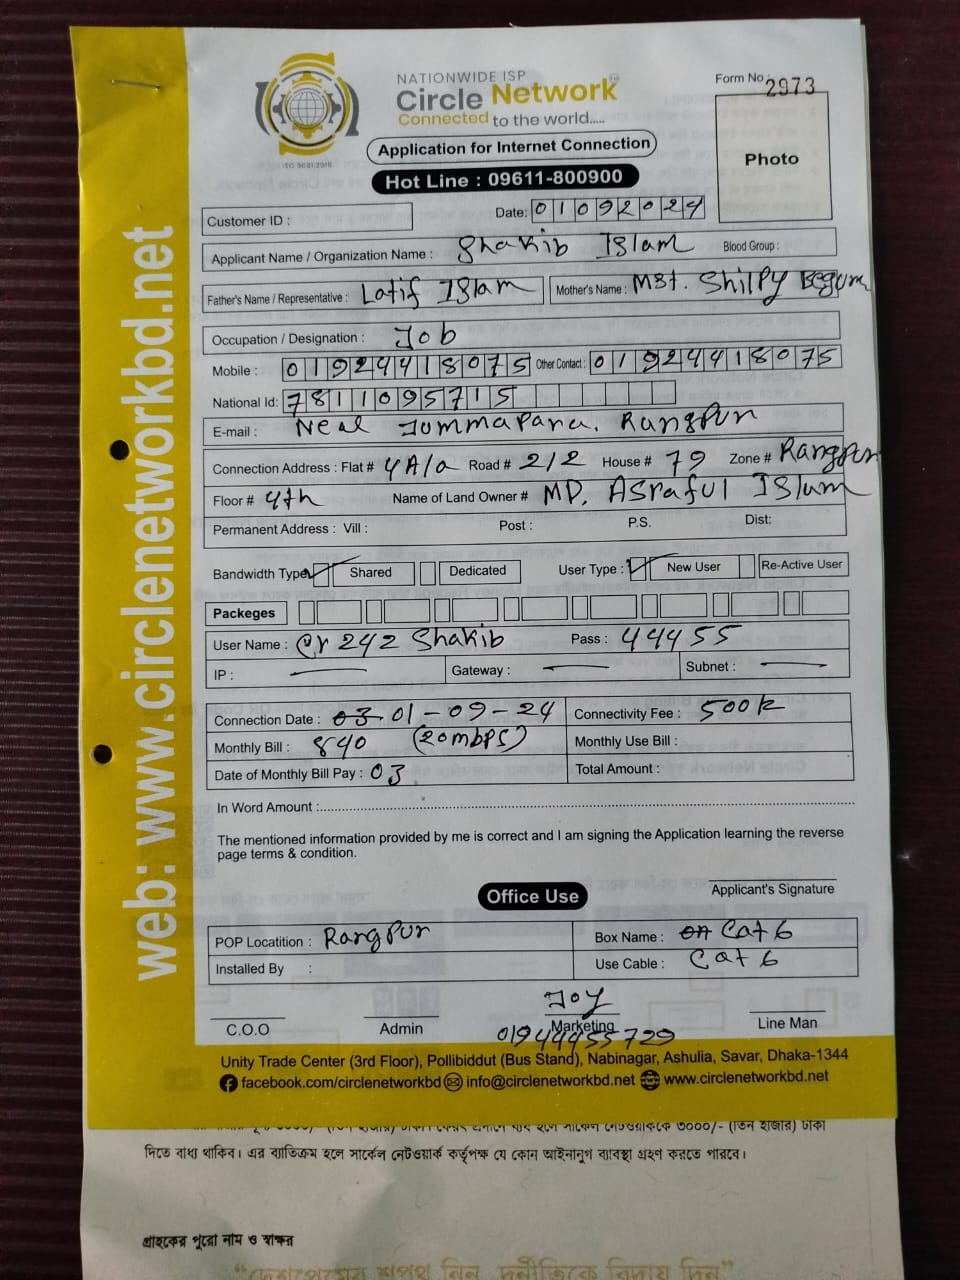 NATIONWIDE ISP
Circle Network
Connected to the world.....
Form No. 2973
Application for Internet Connection
Hot Line : 09611-800900
Photo
ISO 9001:2015
web: www.circlenetworkbd.net
Customer ID :
Date: 01092024
Applicant Name / Organization Name : Shakib Islam Blood Group :
Father's Name / Representative : Latif Islam Mother's Name : Mst. Shilpy Begum
Occupation / Designation : Job
Mobile : 01924418075 Other Contact : 01924418075
National Id: 7811095715
E-mail : Neal Jummapara, Rangpur
Connection Address : Flat # 4A/a Road # 2/2 House # 79 Zone # Rangpur
Floor # 4th Name of Land Owner # MD. Asraful Islam
Permanent Address : Vill : Post : P.S. Dist:
Bandwidth Type Shared Dedicated User Type : New User Re-Active User
Packeges
User Name : Cr242 Shakib Pass : 44455
IP : Gateway : Subnet :
Connection Date : 03 01-09-24 Connectivity Fee : 500tk
Monthly Bill : 840 (20mbps) Monthly Use Bill :
Date of Monthly Bill Pay : 03 Total Amount :
In Word Amount :
The mentioned information provided by me is correct and I am signing the Application learning the reverse
page terms & condition.
Applicant's Signature
Office Use
POP Locatition : Rangpur Box Name : Cat 6
Installed By : Use Cable : Cat 6
Joy
C.O.O Admin Marketing Line Man
01944455729
Unity Trade Center (3rd Floor), Pollibiddut (Bus Stand), Nabinagar, Ashulia, Savar, Dhaka-1344
facebook.com/circlenetworkbd info@circlenetworkbd.net www.circlenetworkbd.net
৩০০০/- (তিন হাজার) টাকা
দিতে বাধ্য থাকিব। এর ব্যাতিক্রম হলে সার্কেল নেটওয়ার্ক কর্তৃপক্ষ যে কোন আইনানুগ ব্যাবস্থা গ্রহণ করতে পারবে।
গ্রাহকের পুরো নাম ও স্বাক্ষর
“দেশপ্রেমের শপথ নিন, দুর্নীতিকে বিদায় দিন”